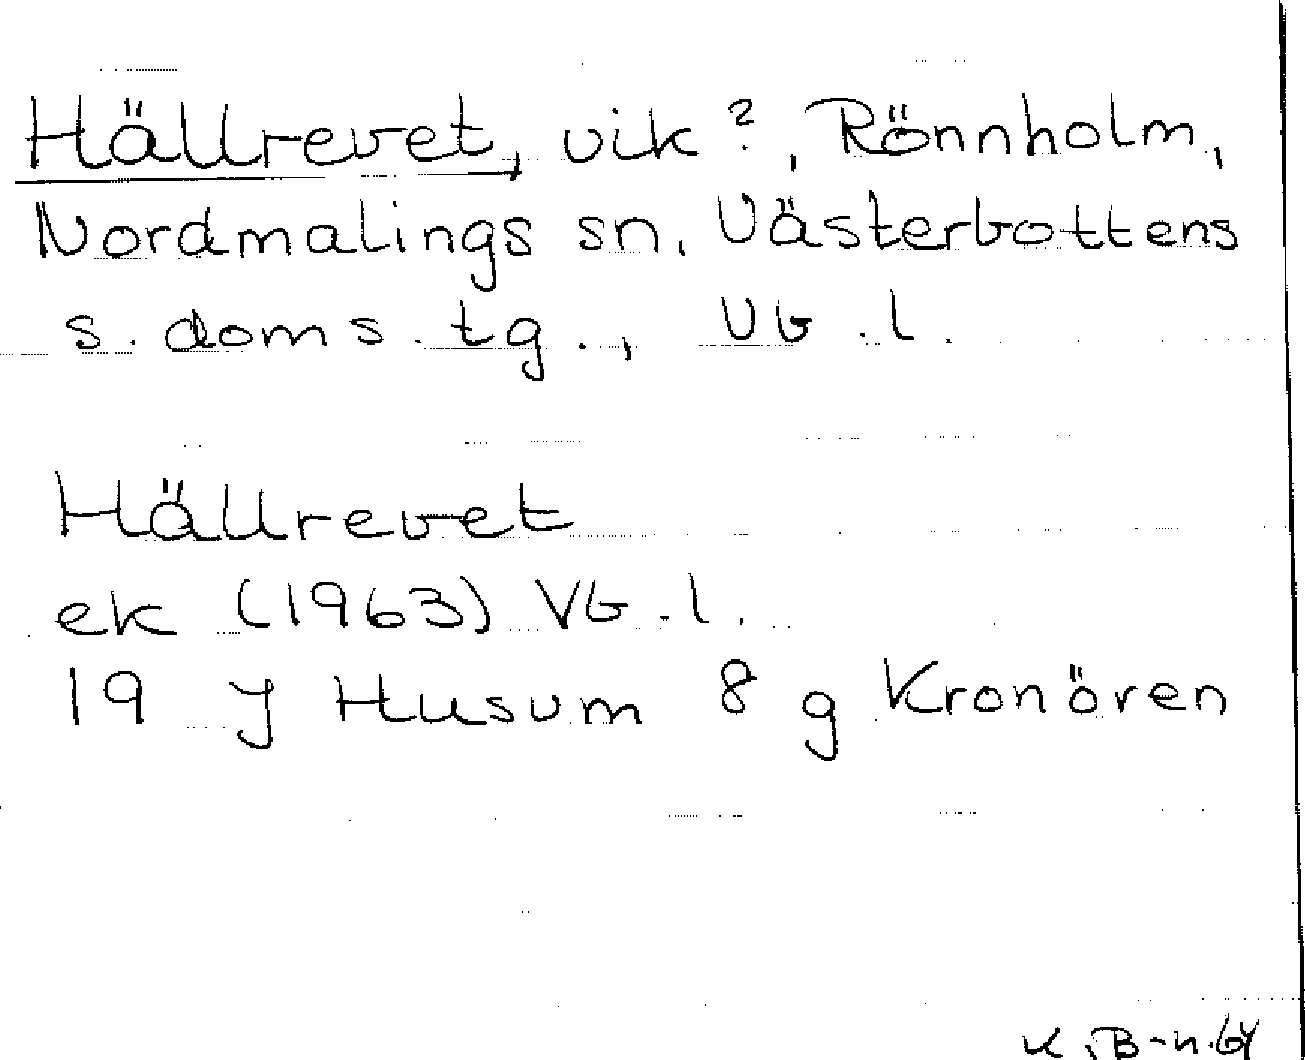 Hällrevet, vik?, Rönnholm,
Nordmalings sn. Västerbottens
s. doms. tg., Vb. l.
Hällrevet
ek (1963) Vb. l.
19 J Husum 8 g Kronören
K. B-n. 64